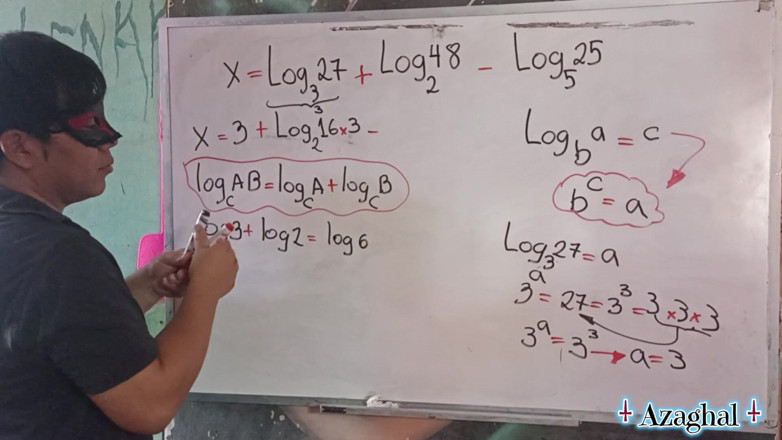 x = Log₃27 + Log₂48 - Log₅25
3
x = 3 + Log₂16×3 -
log_c AB = log_c A + log_c B
3 + log2 = log6
Log_b a = c
b^c = a
Log₃27 = a
3^a = 27 = 3³ = 3×3×3
3^a = 3³ → a = 3
Azaghal